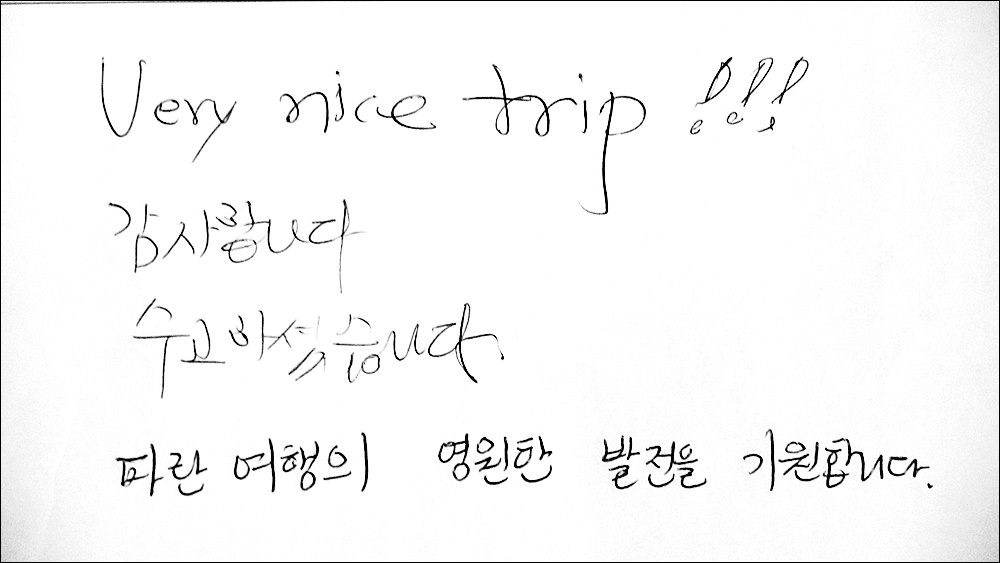 Very nice trip !!!
감사합니다
수고하셨습니다
파란 여행의 영원한 발전을 기원합니다.